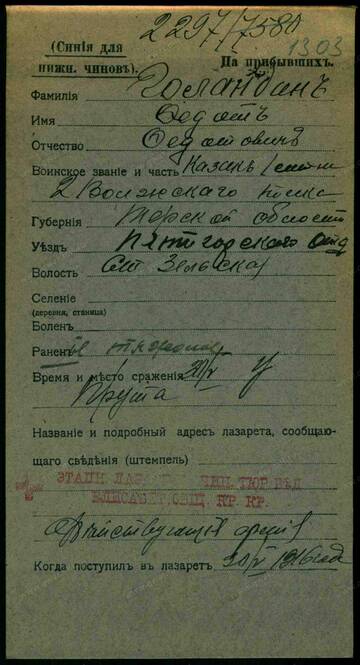 2297/7580
1303
(Синія для нижн. чиновъ).
На прибывшихъ.
Фамилія
Имя Федотъ
Отчество Федотовичъ
Воинское званіе и часть Казакъ 1 сотни
2 Волжскаго полка
Губернія Терской области
Уѣздъ Пятигорскаго отд
Волость Ст. Зельская
Селеніе
(деревня, станица)
Боленъ
Раненъ
Время и мѣсто сраженія у
Прута
Названіе и подробный адресъ лазарета, сообщаю-
щаго свѣдѣнія (штемпель)
ЭТАПН ЛАЗ ТЮР
ЕЛИСАВЕТ. ОБЩ. КР. КР.
Дѣйствующая армія
Когда поступилъ въ лазаретъ 1916 год